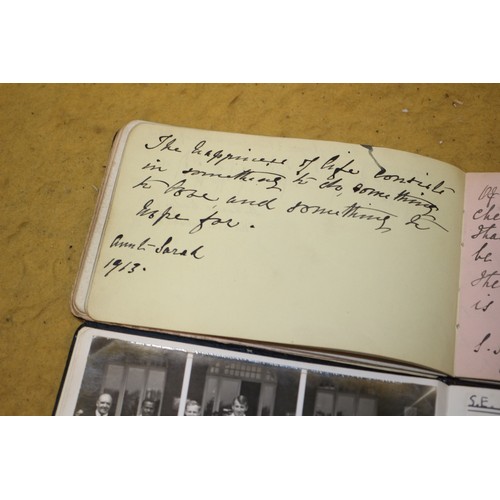 The happiness of life consists
in something to do, something
to love, and something to
hope for.
Aunt Sarah
1913.
If
che
tha
be
the
is
S.
S.E.